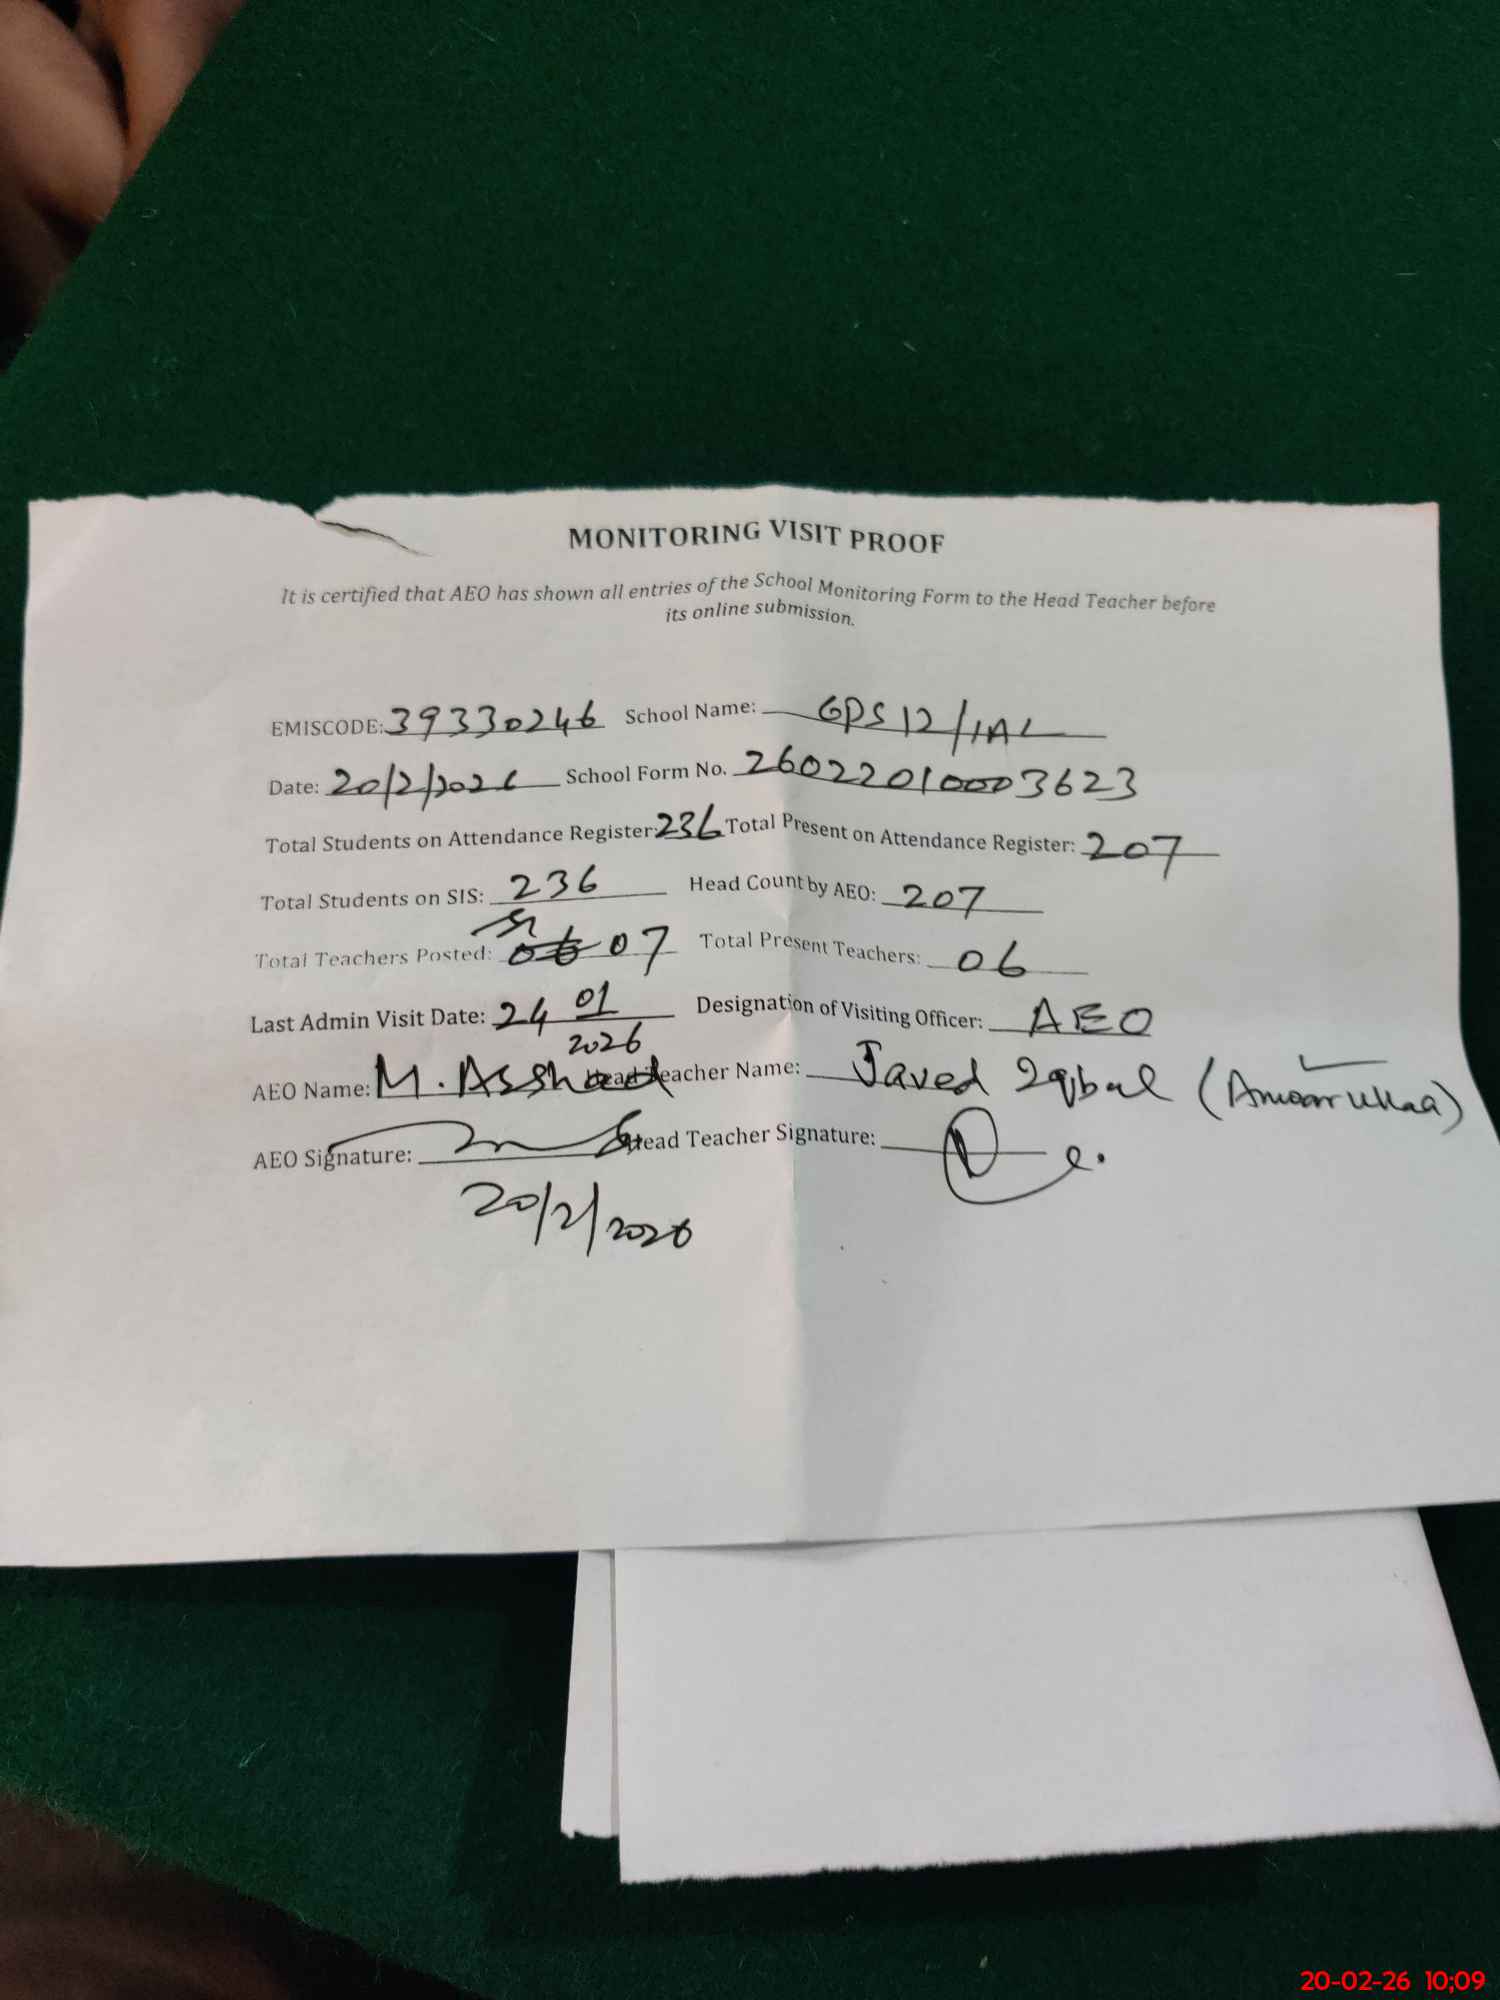 MONITORING VISIT PROOF
It is certified that AEO has shown all entries of the School Monitoring Form to the Head Teacher before
its online submission.
EMISCODE: 39330246 School Name: GPS 12/1AL
Date: 20/2/2026 School Form No. 26022010003623
Total Students on Attendance Register: 236 Total Present on Attendance Register: 207
Total Students on SIS: 236 Head Count by AEO: 207
Total Teachers Posted: 07 Total Present Teachers: 06
Last Admin Visit Date: 24 01 2026 Designation of Visiting Officer: AEO
AEO Name: M. Asshad Head Teacher Name: Javed Iqbal
AEO Signature: Head Teacher Signature:
20/2/2026
20-02-26 10;09